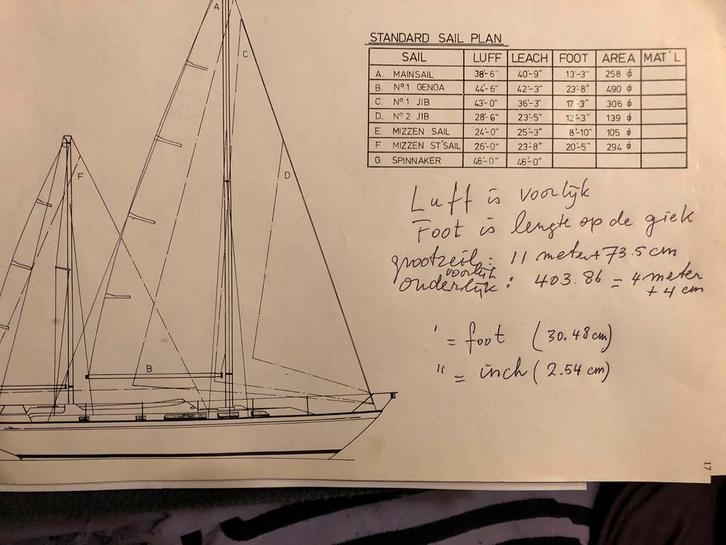 STANDARD SAIL PLAN
SAIL LUFF LEACH FOOT AREA MAT'L
A. MAINSAIL 38'-6" 40'-9" 13'-3" 258 ϕ
B. Nº1 GENOA 44'-6" 42'-3" 23'-8" 490 ϕ
C. Nº1 JIB 43'-0" 36'-3" 17'-3" 306 ϕ
D. Nº2 JIB 28'-6" 23'-5" 12'-3" 139 ϕ
E. MIZZEN SAIL 24'-0" 25'-3" 8'-10" 105 ϕ
F. MIZZEN ST'SAIL 26'-0" 23'-8" 20'-5" 294 ϕ
G. SPINNAKER 46'-0" 46'-0"
A
C
F
D
B
Luff is voorlijk
Foot is lengte op de giek
grootzeil: 11 meter + 73.5 cm
voorlijk
onderlijk: 403.86 = 4 meter
+ 4 cm
' = foot (30.48 cm)
" = inch (2.54 cm)
17